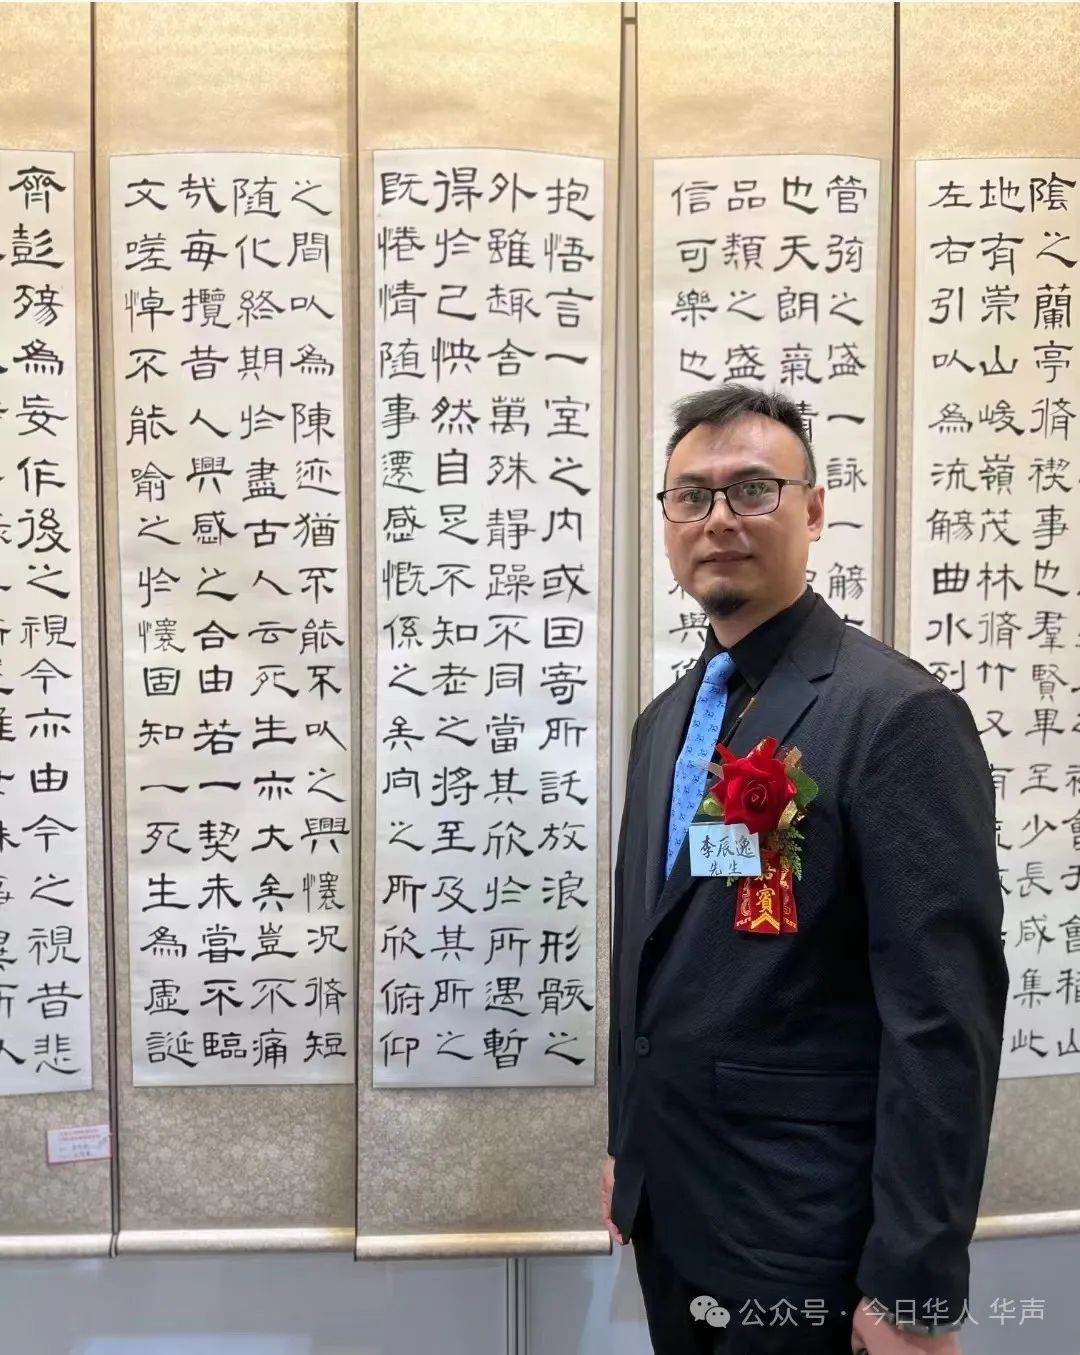 會稽山
陰之蘭亭脩禊事也羣賢畢至少長咸集此
地有崇山峻嶺茂林脩竹又有
左右引以為流觴曲水列
管弦之盛一詠一觴
也天朗氣清
品類之盛
信可樂也
抱悟言一室之内或因寄所託放浪形骸之
外雖趣舍萬殊靜躁不同當其欣於所遇暫
得於己怏然自足不知老之將至及其所之
既惓情隨事遷感慨係之矣向之所欣俯仰
之間以為陳迹猶不能不以之興懷況脩短
隨化終期於盡古人云死生亦大矣豈不痛
哉每攬昔人興感之合由若一契未嘗不臨
文嗟悼不能喻之於懷固知一死生為虛誕
齊彭殤為妄作後之視今亦由今之視昔悲
李辰逸
先生
嘉賓
公众号 · 今日华人 华声